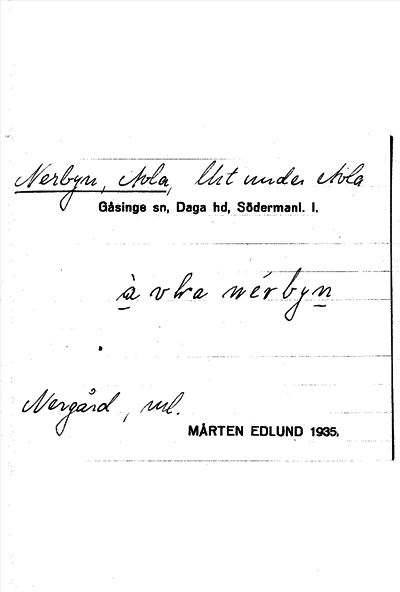 Nerbyn, Avla, lht under Avla
Gåsinge sn, Daga hd, Södermanl. l.
à vla nérbyn
Nergård, ul.
MÅRTEN EDLUND 1935.